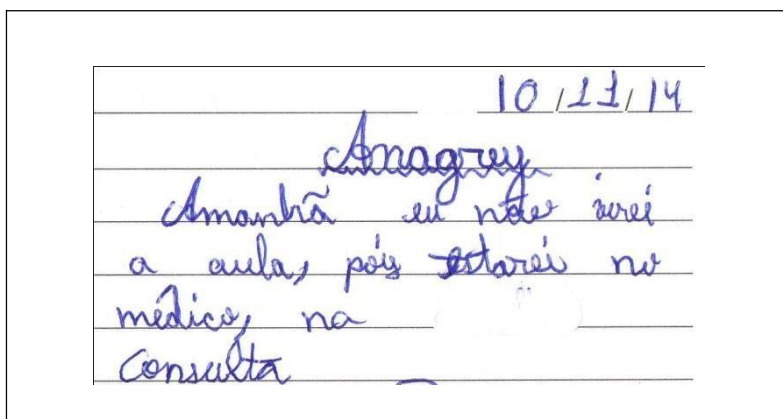 10/11/14
Anagrey
Amanhã eu não irei
a aula, póis estarei no
médico, na
Consulta